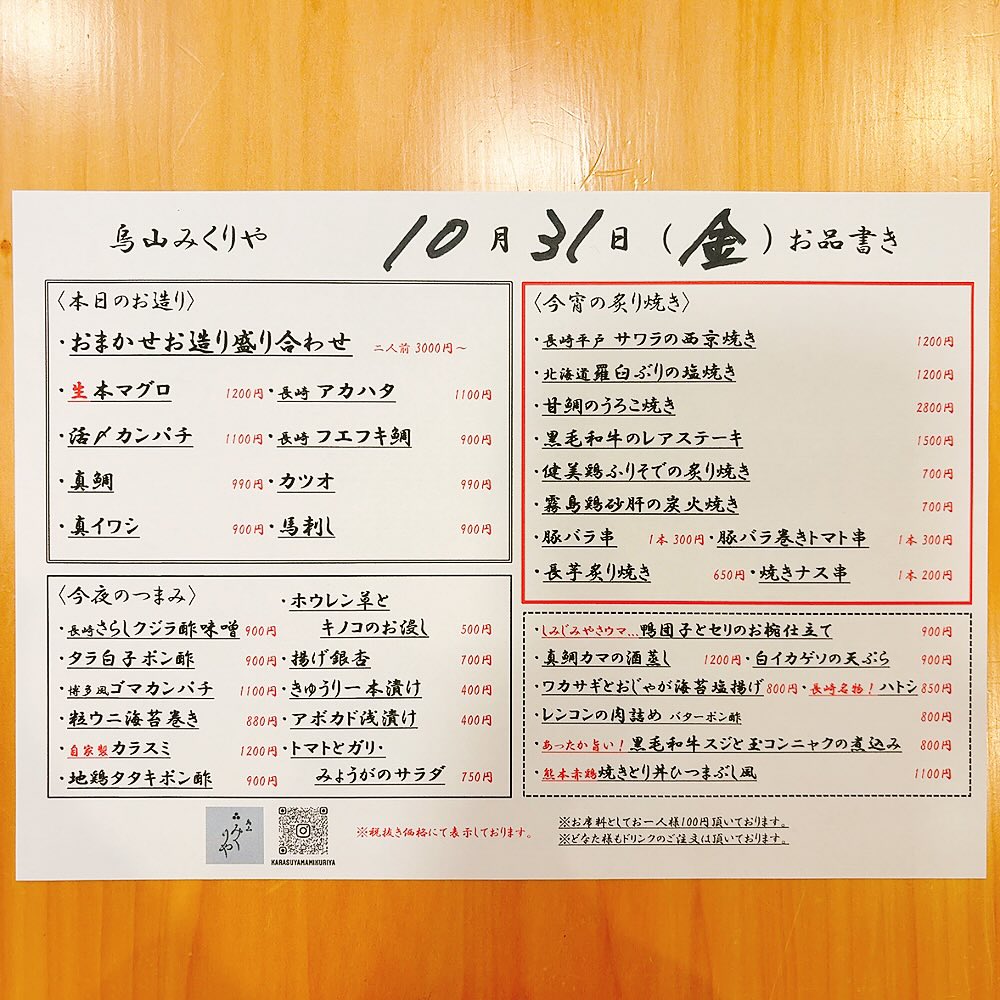 烏山みくりや 10月31日(金)お品書き
〈本日のお造り〉
・おまかせお造り盛り合わせ 二人前 3000円～
・生本マグロ 1200円
・長崎 アカハタ 1100円
・活〆カンパチ 1100円
・長崎 フエフキ鯛 900円
・真鯛 990円
・カツオ 990円
・真イワシ 900円
・馬刺し 900円
〈今夜のつまみ〉
・長崎さらしクジラ酢味噌 900円
・タラ白子ポン酢 900円
・博多風ゴマカンパチ 1100円
・粒ウニ海苔巻き 880円
・自家製カラスミ 1200円
・地鶏タタキポン酢 900円
・ホウレン草と
キノコのお浸し 500円
・揚げ銀杏 700円
・きゅうり一本漬け 400円
・アボカド浅漬け 400円
・トマトとガリ・
みょうがのサラダ 750円
〈今宵の炙り焼き〉
・長崎平戸 サワラの西京焼き 1200円
・北海道羅臼ぶりの塩焼き 1200円
・甘鯛のうろこ焼き 2800円
・黒毛和牛のレアステーキ 1500円
・健美鶏ふりそでの炙り焼き 700円
・霧島鶏砂肝の炭火焼き 700円
・豚バラ串 1本 300円
・豚バラ巻きトマト串 1本 300円
・長芋炙り焼き 650円
・焼きナス串 1本 200円
・しみじみやさウマ…鴨団子とセリのお椀仕立て 900円
・真鯛カマの酒蒸し 1200円
・白イカゲソの天ぷら 900円
・ワカサギとおじゃが海苔塩揚げ 800円
・長崎名物！ハトシ 850円
・レンコンの肉詰め バターポン酢 800円
・あったか旨い！黒毛和牛スジと玉コンニャクの煮込み 800円
・熊本赤鶏焼きとり丼ひつまぶし風 1100円
烏山
みくりや
KARASUYAMAMIKURIYA
※税抜き価格にて表示しております。
※お席料としてお一人様100円頂いております。
※どなた様もドリンクのご注文は頂いております。